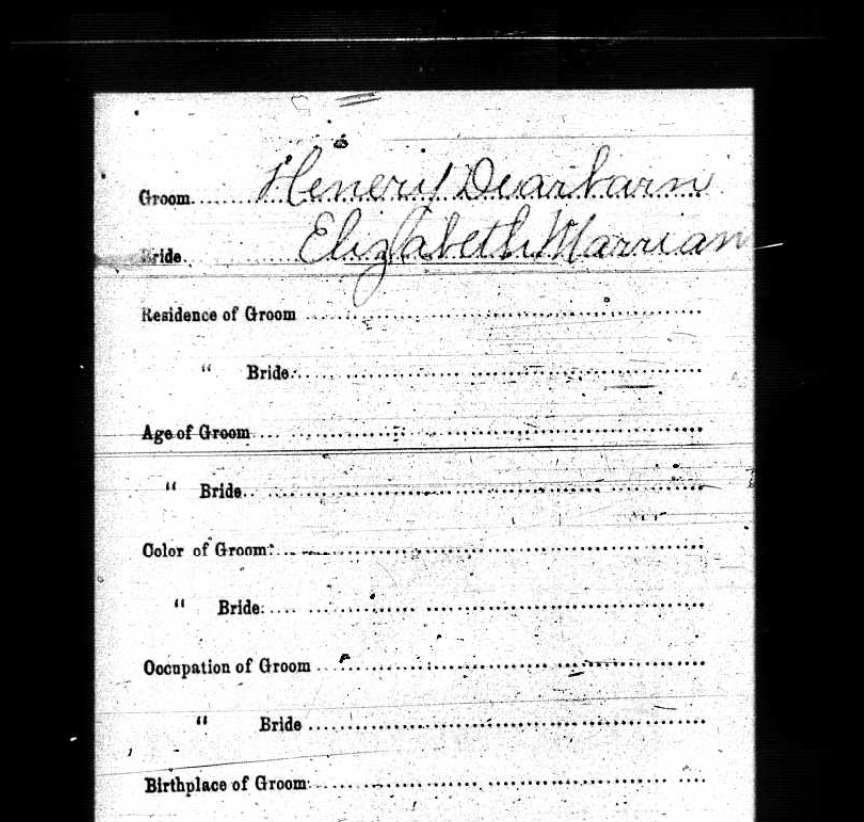 Groom. Henery Dearbarn
Bride. Elizabeth Marrian
Residence of Groom
" Bride.
Age of Groom
" Bride.
Color of Groom.
" Bride.
Occupation of Groom
" Bride
Birthplace of Groom